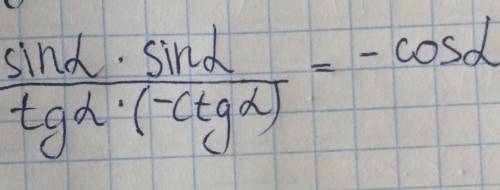 sinα · sinα
tgα · (-ctgα) = - cosα